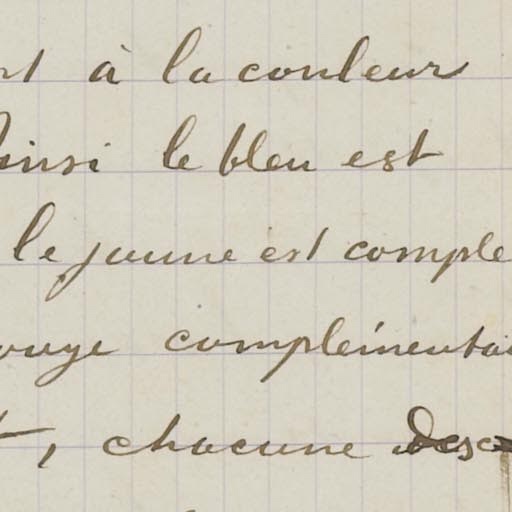 à la couleur
Ainsi le bleu est
le jaune est comple
ouge complémentai
, chacune